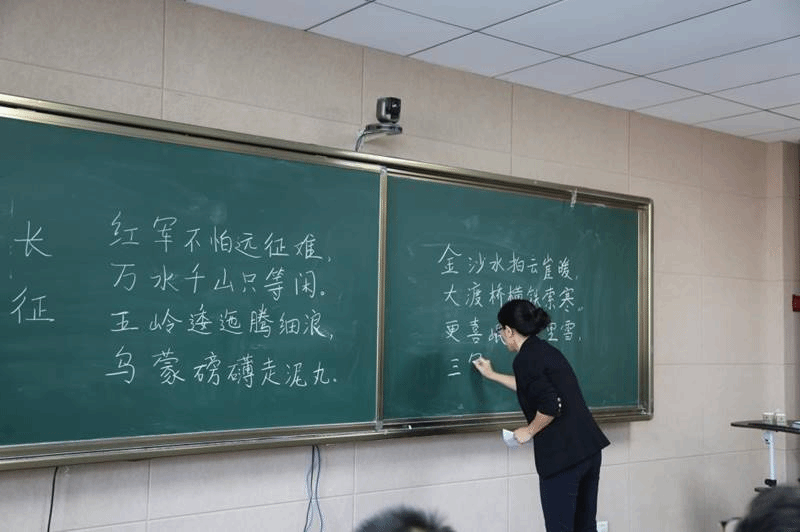 长征
红军不怕远征难,
万水千山只等闲。
五岭逶迤腾细浪,
乌蒙磅礴走泥丸.
金沙水拍云崖暖,
大渡桥横铁索寒。
更喜 里雪,
三